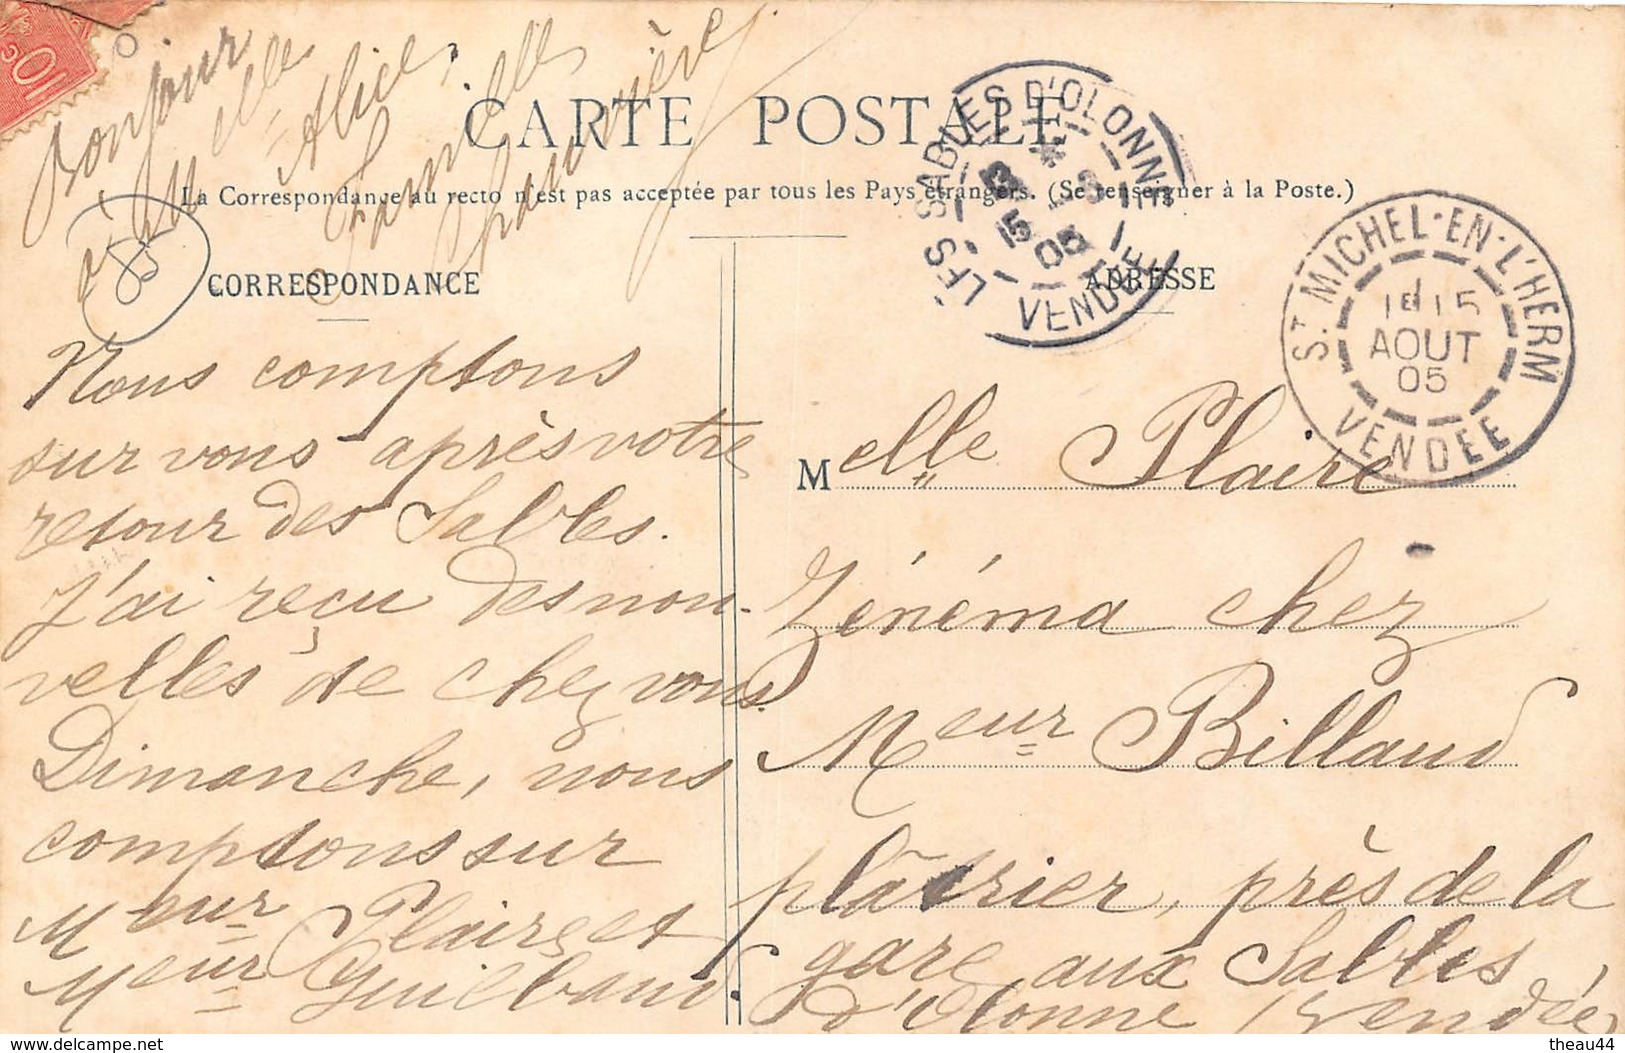 Bonjour
à M elle
Alice,
Famille
CARTE POSTALE
La Correspondance au recto n'est pas acceptée par tous les Pays étrangers. (Se renseigner à la Poste.)
LES SABLES D'OLONNE
15
05
VENDÉE
ST MICHEL-EN-L'HERM
15
AOUT
05
VENDÉE
CORRESPONDANCE
Nous comptons
sur vous après votre
retour des Sables.
J'ai reçu des nou-
velles de chez vous
Dimanche, nous
comptons sur
Meur Plaire et
Meur Guilbaud.
ADRESSE
Melle Plaire
Zénéma chez
Meur Billaud
plâtrier, près de la
gare aux Sables
d'Olonne (Vendée)
85
10c
theau44